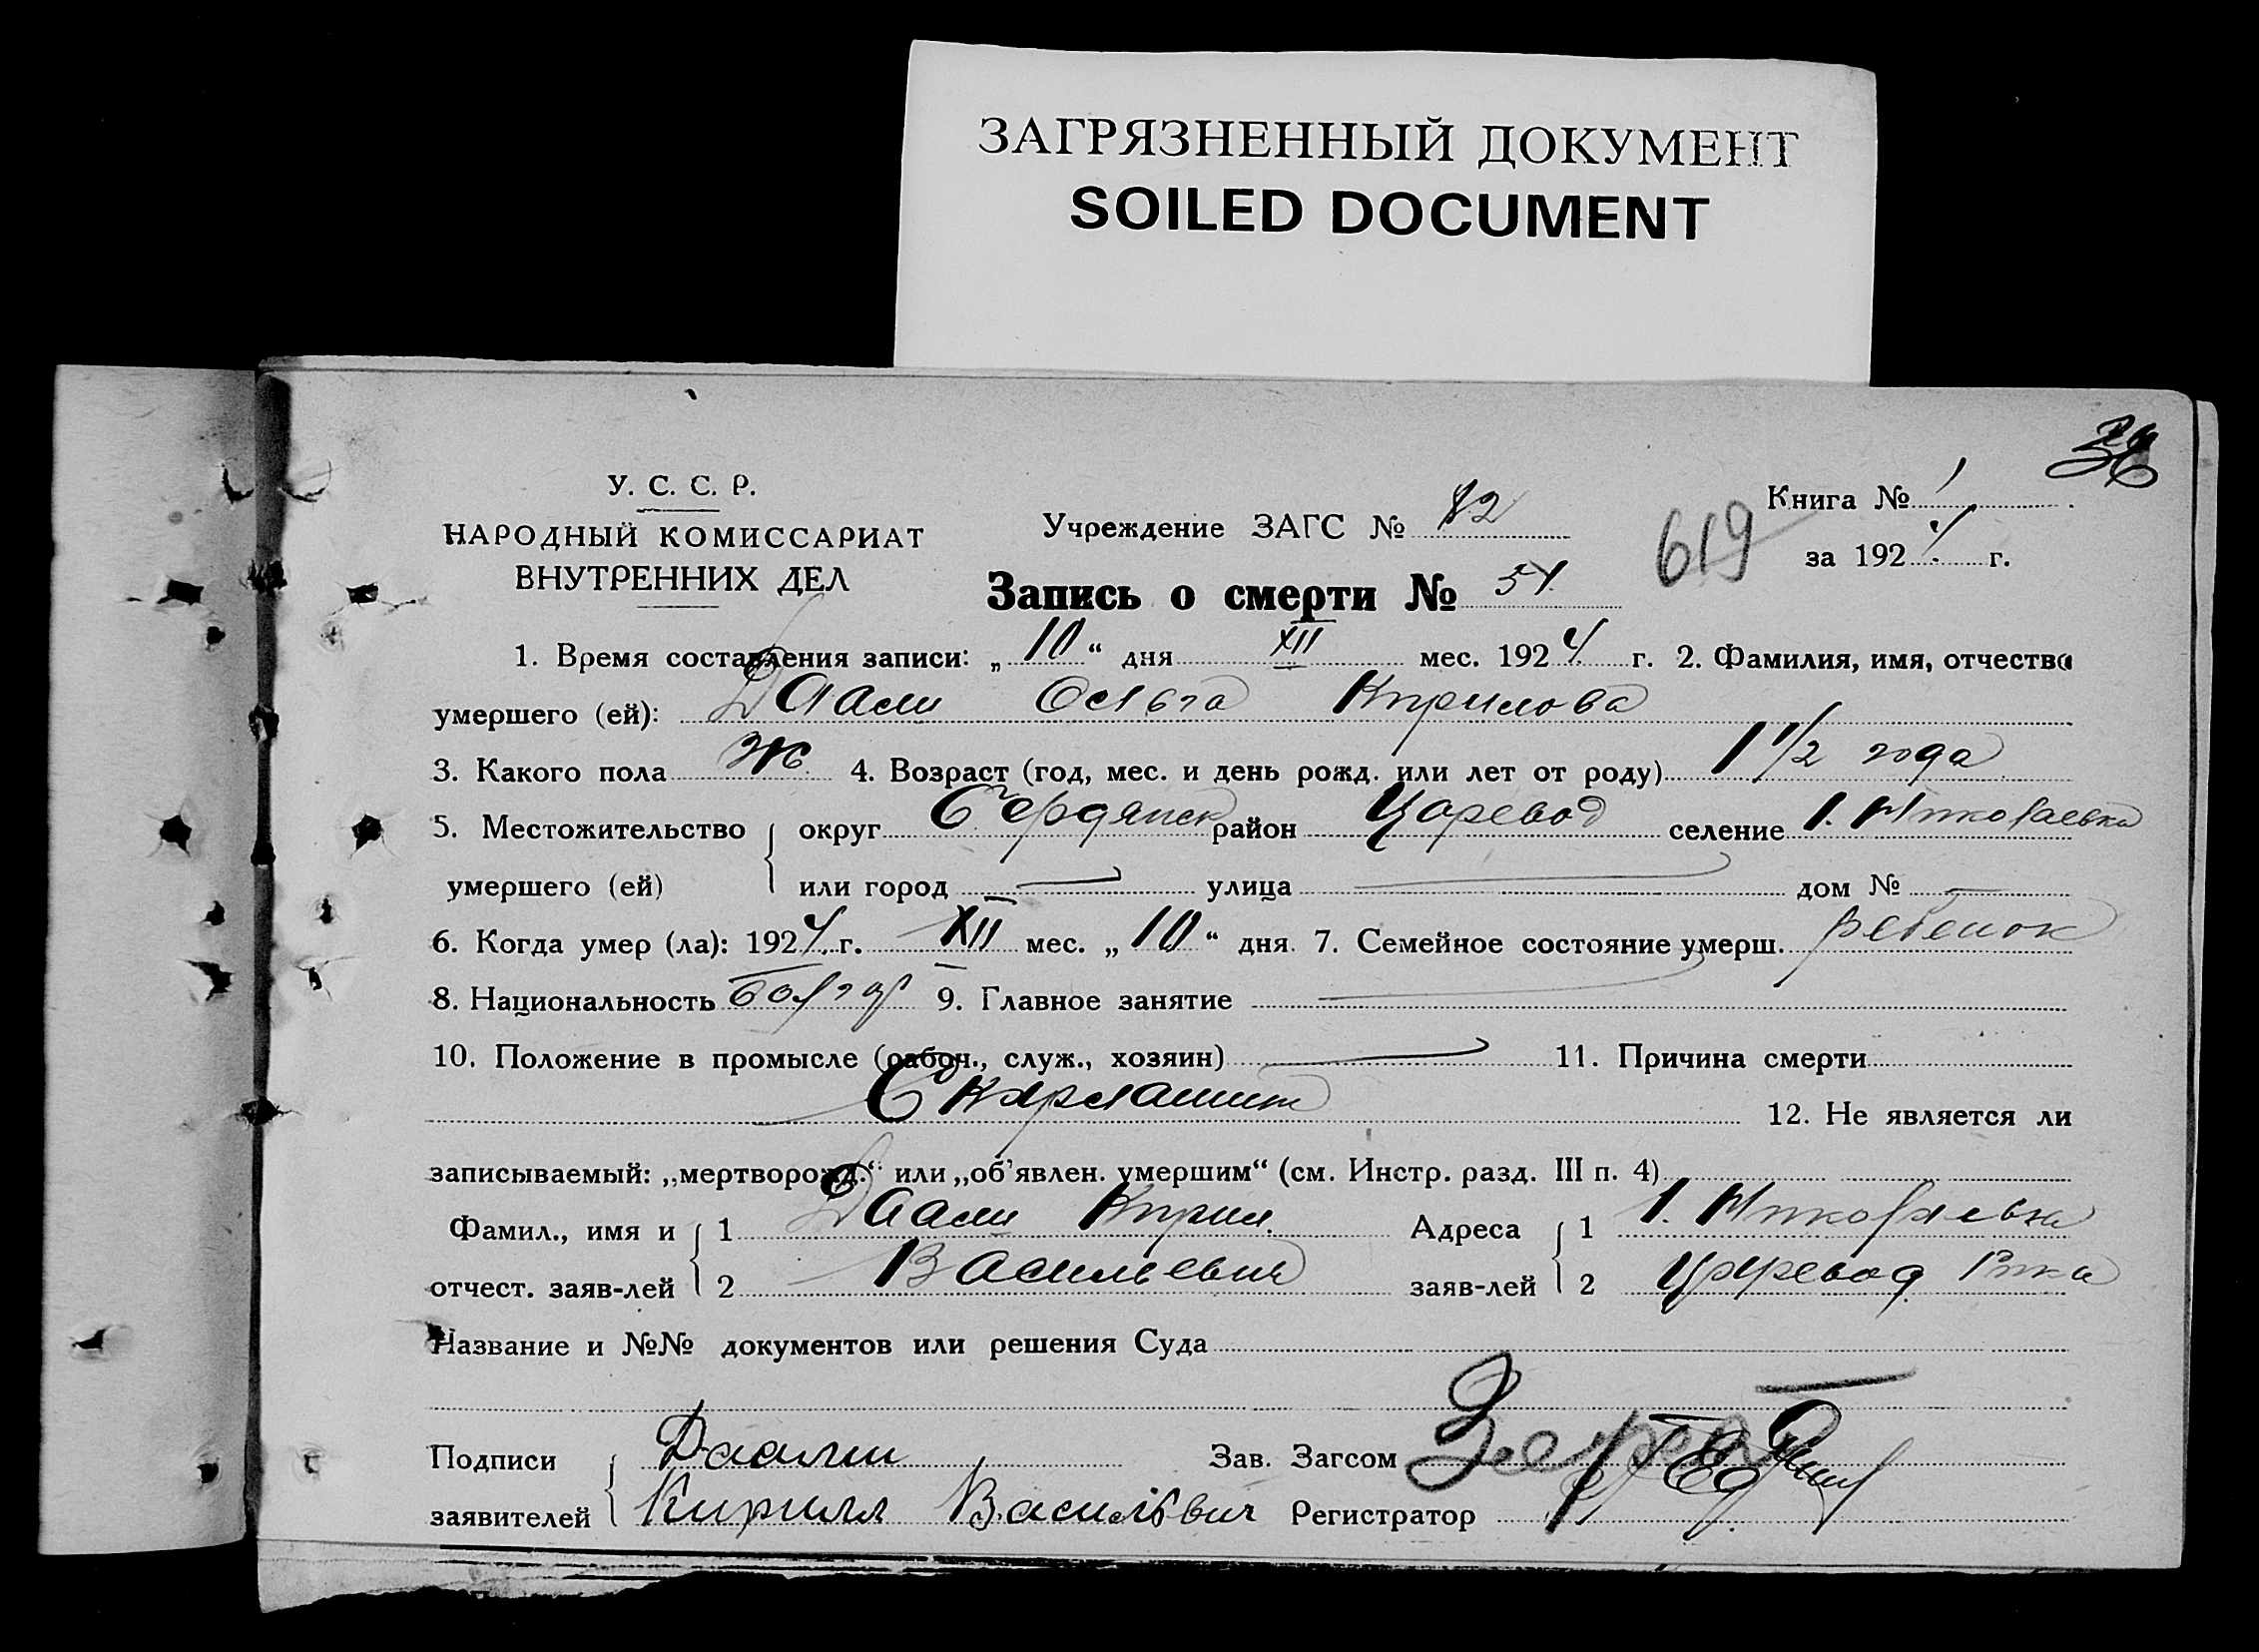 ЗАГРЯЗНЕННЫЙ ДОКУМЕНТ
SOILED DOCUMENT
36
У. С. С. Р.
НАРОДНЫЙ КОМИССАРИАТ
ВНУТРЕННИХ ДЕЛ
Учреждение ЗАГС № 82
619
Книга № 1
за 1924 г.
Запись о смерти № 54
1. Время составления записи: „10“ дня XII мес. 1924 г. 2. Фамилия, имя, отчество
умершего (ей): Даали Ольга Кирилова
3. Какого пола ж. 4. Возраст (год, мес. и день рожд. или лет от роду) 1 1/2 года
5. Местожительство округ Бердянск район Царевод селение 1. Николаевка
умершего (ей) или город — улица — дом № —
6. Когда умер (ла): 1924 г. XII мес. „10“ дня. 7. Семейное состояние умерш. ребенок
8. Национальность болгар 9. Главное занятие —
10. Положение в промысле (рабоч., служ., хозяин) — 11. Причина смерти
Скарлатин 12. Не является ли
записываемый: „мертворожд.“ или „об'явлен. умершим“ (см. Инстр. разд. III п. 4)
Фамил., имя и 1 Даали Кирил Адреса 1 1. Николаевка
отчест. заяв-лей 2 Васильевич заяв-лей 2 Царевод. Рика
Название и №№ документов или решения Суда
Подписи Даалли Зав. Загсом
заявителей Кирилл Васильвич Регистратор